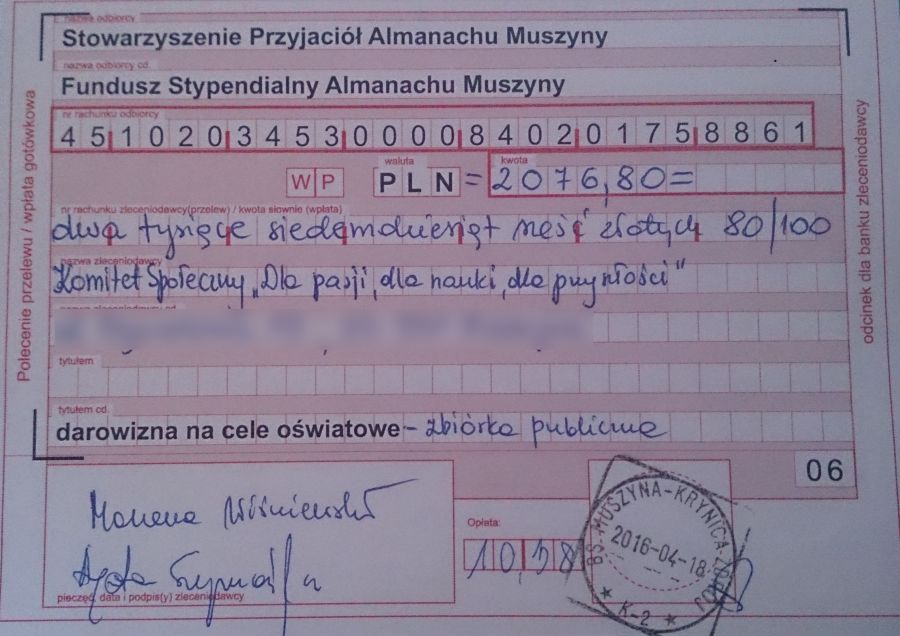 nazwa odbiorcy
Stowarzyszenie Przyjaciół Almanachu Muszyny
nazwa odbiorcy cd.
Fundusz Stypendialny Almanachu Muszyny
nr rachunku odbiorcy
45102034530000840201758861
WP
waluta
PLN
kwota
=2076,80=
nr rachunku zleceniodawcy(przelew) / kwota słownie (wpłata)
dwa tysiące siedemdziesiąt sześć złotych 80/100
nazwa zleceniodawcy
Komitet Społeczny „Dla pasji, dla nauki, dla przyszłości"
nazwa zleceniodawcy cd.
tytułem
tytułem cd.
darowizna na cele oświatowe - zbiórka publiczna
06
Opłata:
10,38
pieczęć, data i podpis(y) zleceniodawcy
BS-MUSZYNA-KRYNICA-ZDRÓJ
2016-04-18
K-2
Polecenie przelewu / wpłata gotówkowa
odcinek dla banku zleceniodawcy